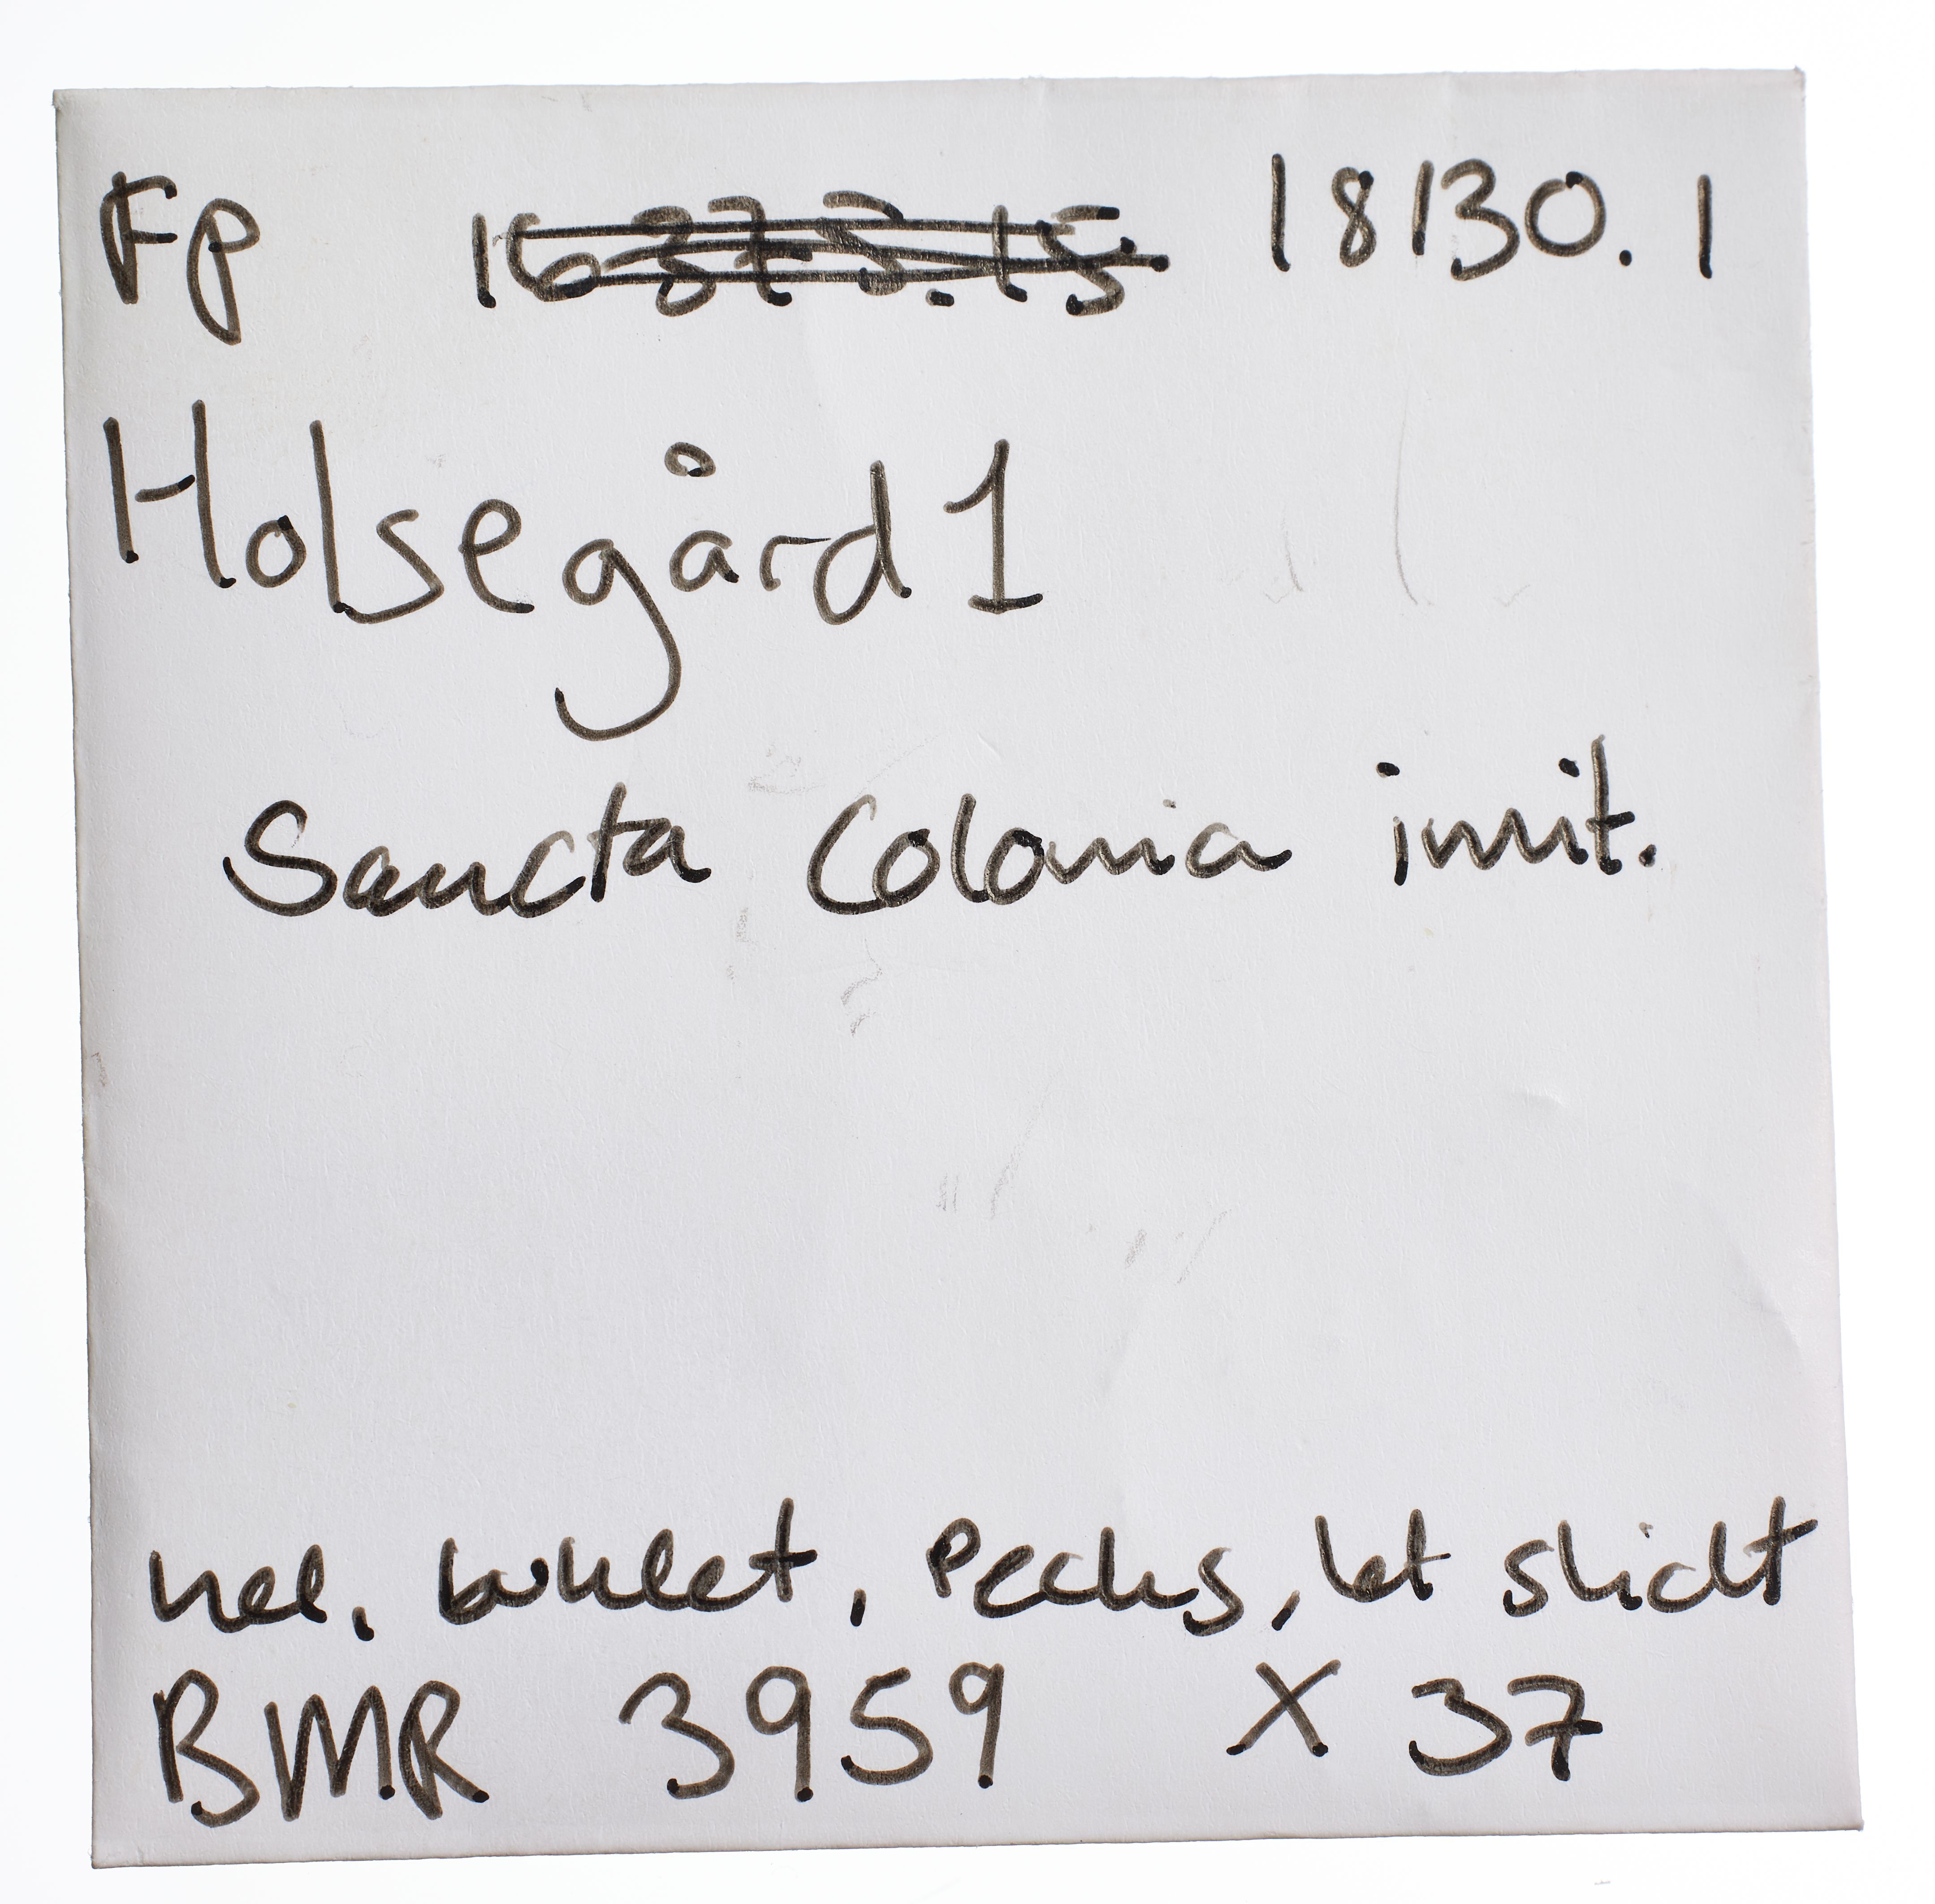 Fp 18130.1
Holsegård 1
Sancta Colonia imit.
hel, buklet, Pecks, let slidt
BMR 3959 X 37